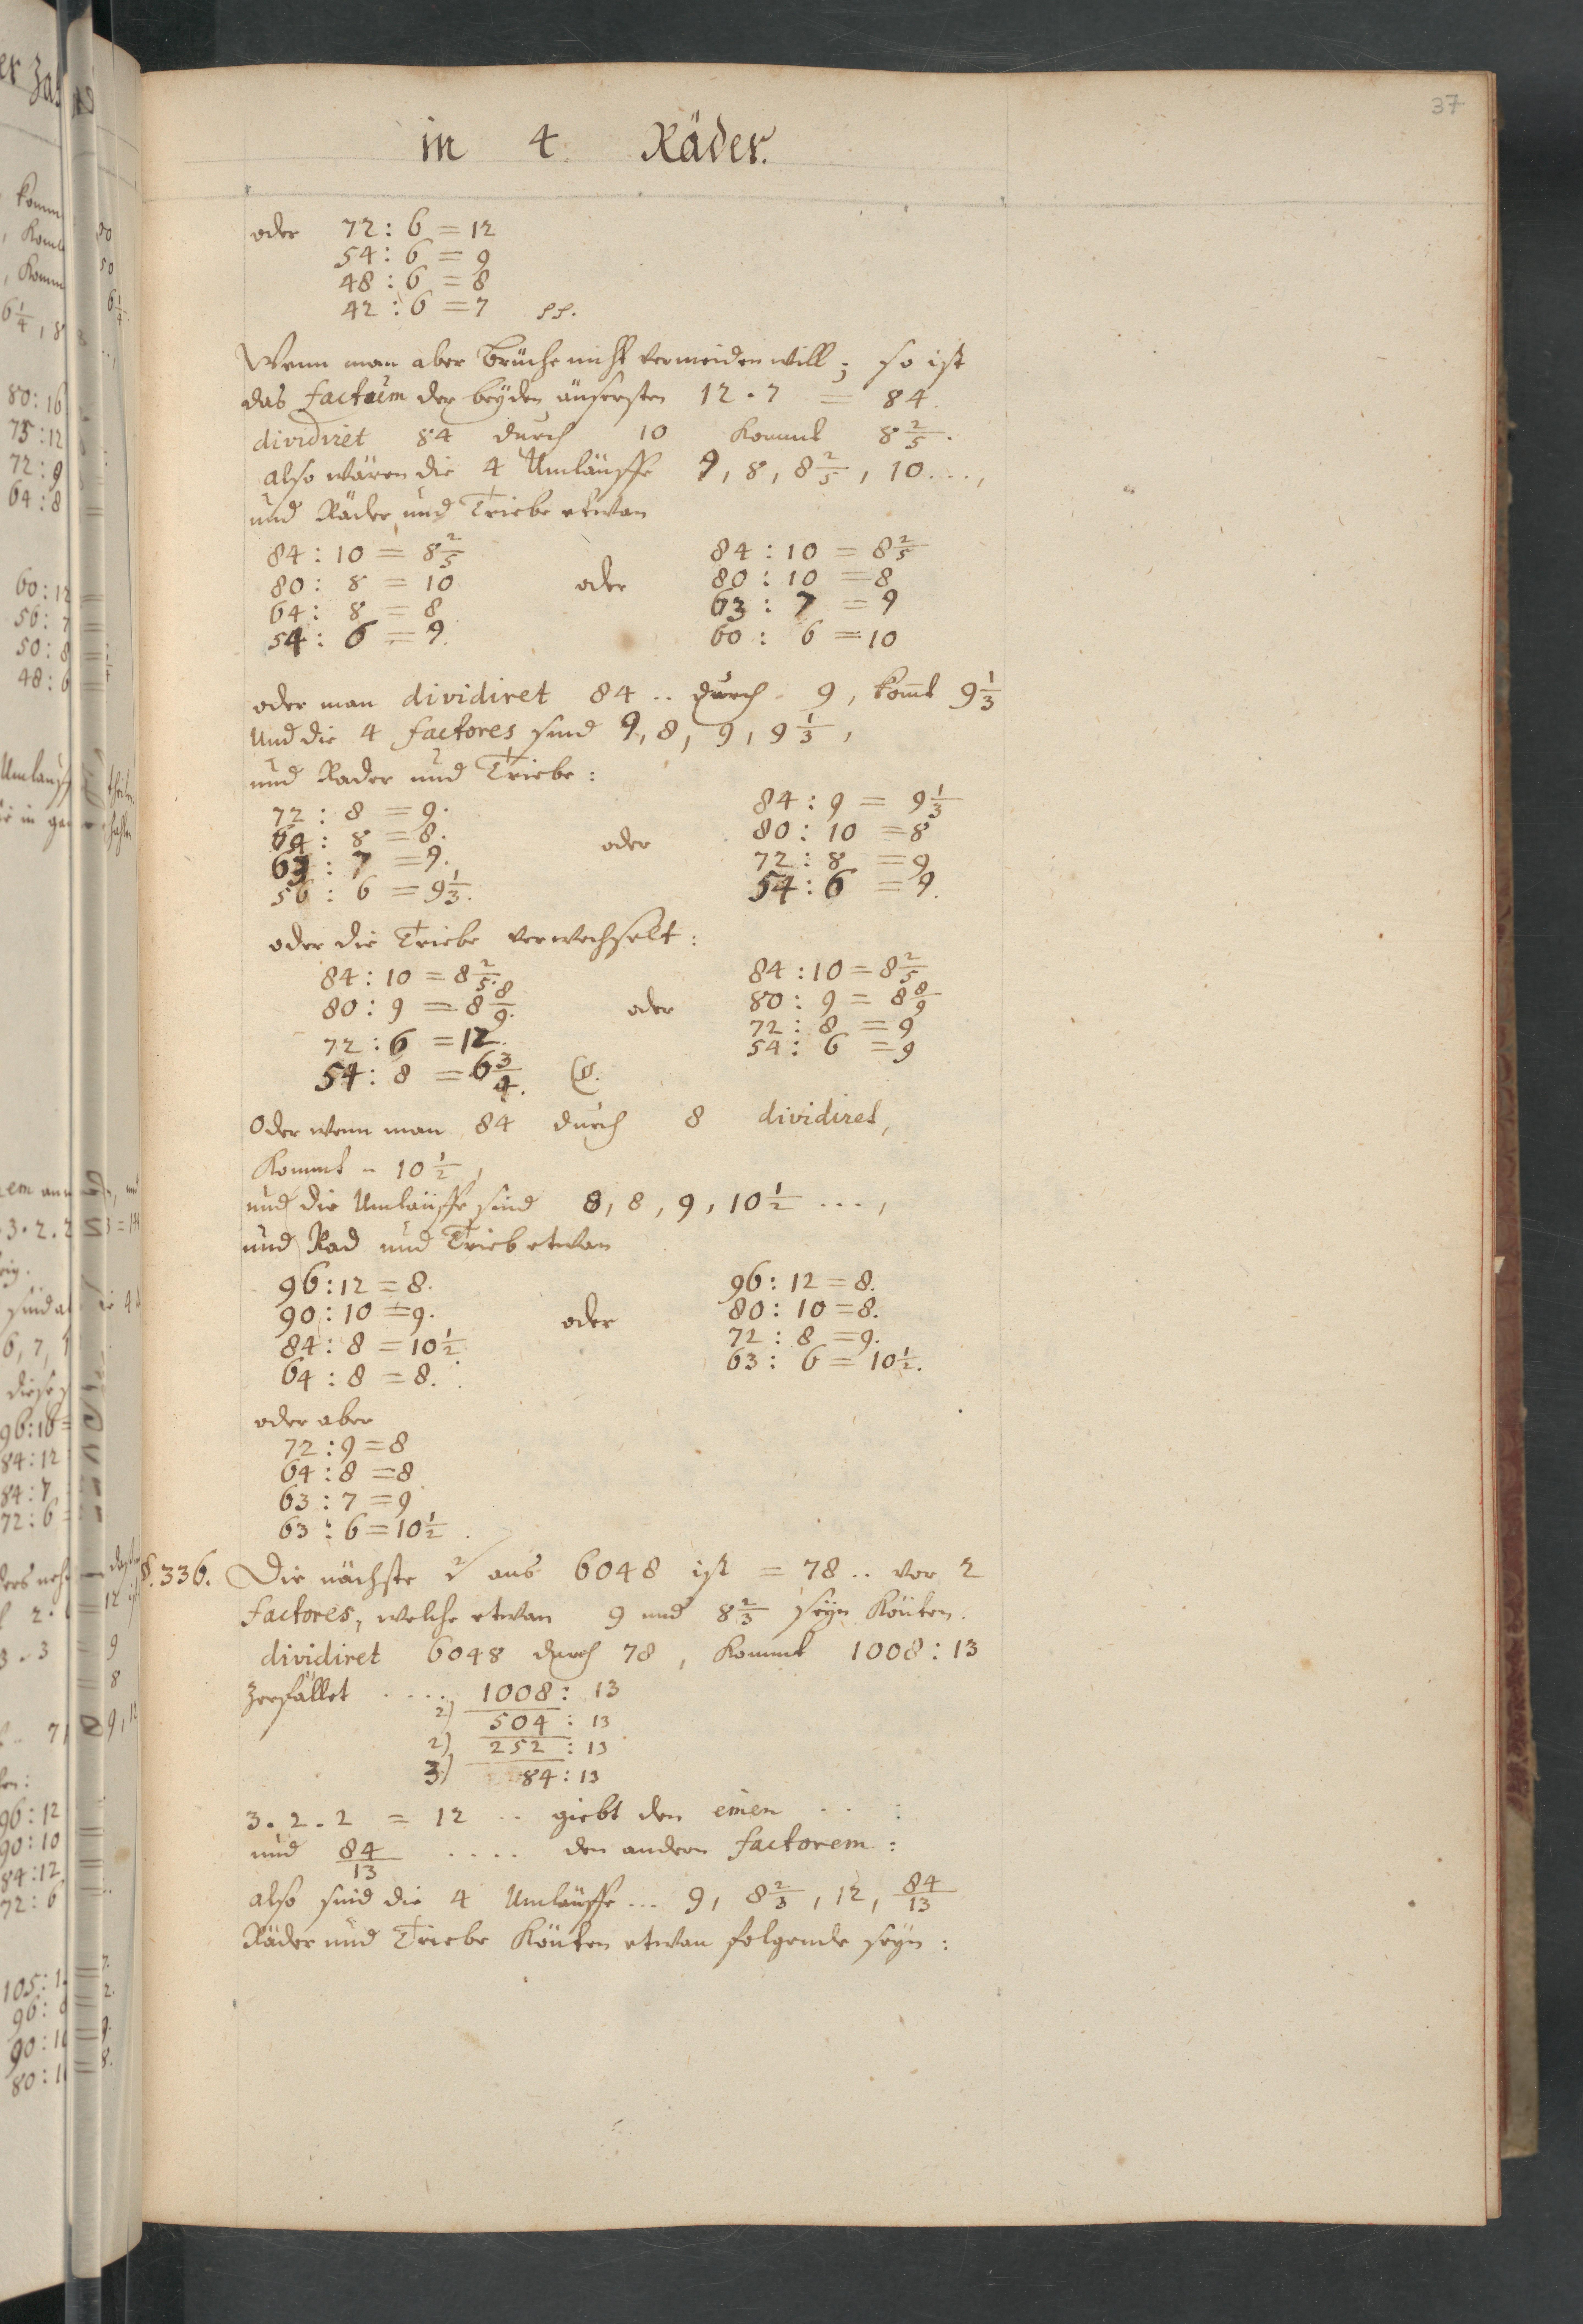 37
in 4 Räder.
oder 72 : 6 = 12
54 : 6 = 9
48 : 6 = 8
42 : 6 = 7
Wenn man aber Brüche nicht vermeiden will; so ist
das factum der beyden äusersten 12 . 7 = 84.
dividiret 84 durch 10 kommt 8 2/5.
also wären die 4 Umläuffe 9, 8, 8 2/5, 10 ...,
und Räder und Triebe etwan
84 : 10 = 8 2/5
80 : 8 = 10
64 : 8 = 8
54 : 6 = 9.
oder
84 : 10 = 8 2/5
80 : 10 = 8
63 : 7 = 9
60 : 6 = 10
oder man dividiret 84 .. durch 9, komt 9 1/3
Und die 4 factores sind 9, 8, 9, 9 1/3,
und Rader und Triebe:
72 : 8 = 9.
64 : 8 = 8.
63 : 7 = 9.
56 : 6 = 9 1/3.
oder
84 : 9 = 9 1/3
80 : 10 = 8
72 : 8 = 9
54 : 6 = 9.
oder die Triebe verwechselt:
84 : 10 = 8 2/5.
80 : 9 = 8 8/9.
72 : 6 = 12.
54 : 8 = 6 3/4.
oder
84 : 10 = 8 2/5
80 : 9 = 8 8/9
72 : 8 = 9
54 : 6 = 9
Oder wenn man 84 durch 8 dividiret,
kommt - 10 1/2,
und die Umläuffe sind 8, 8, 9, 10 1/2 ...,
und Rad und Trieb etwan
96 : 12 = 8.
90 : 10 = 9.
84 : 8 = 10 1/2
64 : 8 = 8.
oder
96 : 12 = 8.
80 : 10 = 8.
72 : 8 = 9.
63 : 6 = 10 1/2.
oder aber
72 : 9 = 8
64 : 8 = 8
63 : 7 = 9
63 : 6 = 10 1/2.
§. 336. Die nächste aus 6048 ist = 78 .. vor 2
factores, welche etwan 9 und 8 2/3 seyn könten.
dividiret 6048 durch 78, kommt 1008 : 13
zerfället .... 1008 : 13
2) 504 : 13
2) 252 : 13
3) 84 : 13
3 . 2 . 2 = 12 .. giebt den einen .. :
und 84/13 .... den andern factorem :
also sind die 4 Umläuffe ... 9, 8 2/3, 12, 84/13
Räder und Triebe könten etwan folgende seyn :